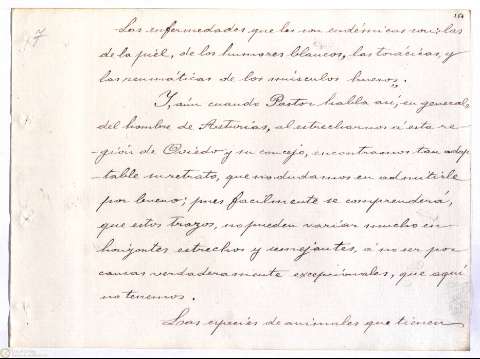 164
7
Las enfermedades que les son endémicas son: las
de la piel, de los humores blancos, las torácicas, y
las reumáticas de los músculos huesos".
Y, aún cuando Pastor habla así, en general,
del hombre de Asturias, al estrecharnos á esta re-
-gión de Oviedo y su concejo, encontramos tan adap-
table su retrato, que no dudamos en admitirle
por bueno; pues facilmente se comprenderá,
que estos trazos, no pueden variar mucho en
horizontes estrechos y semejantes, á no ser por
causas verdaderamente excepcionales, que aquí
no tenemos.
Las especies de animales que tienen